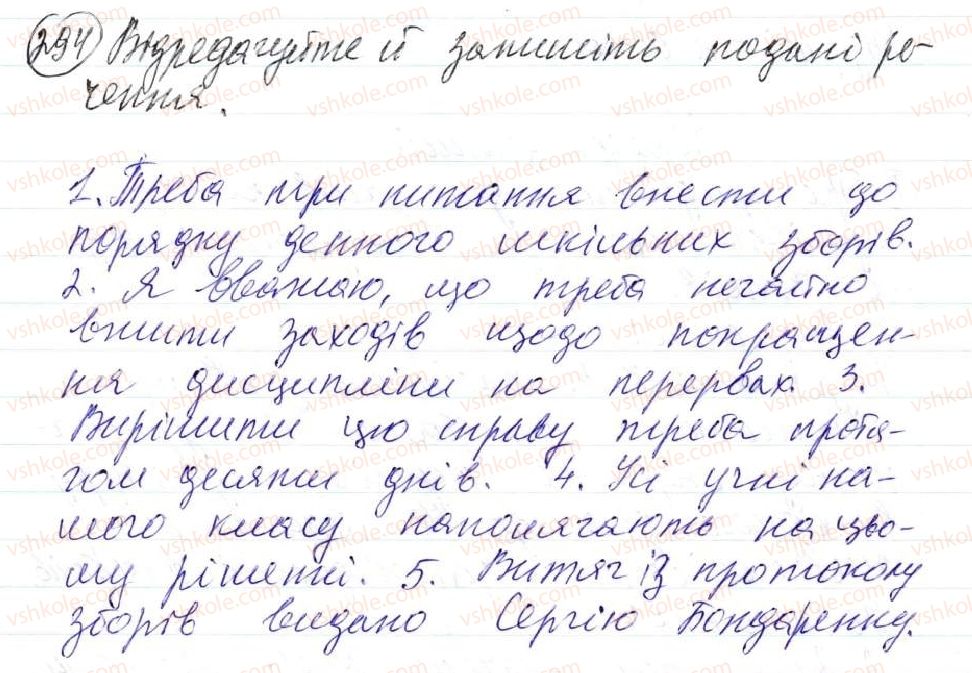 294 Відредагуйте й запишіть подані ре-
чення.
1. Треба три питання внести до
порядку денного шкільних зборів.
2. Я вважаю, що треба негайно
вжити заходів щодо покращен-
ня дисципліни на перервах. 3.
Вирішити цю справу треба протя-
гом десяти днів. 4. Усі учні на-
шого класу наполягають на цьо-
му рішенні. 5. Витяг із протоколу
зборів видано Сергію Бондаренку.